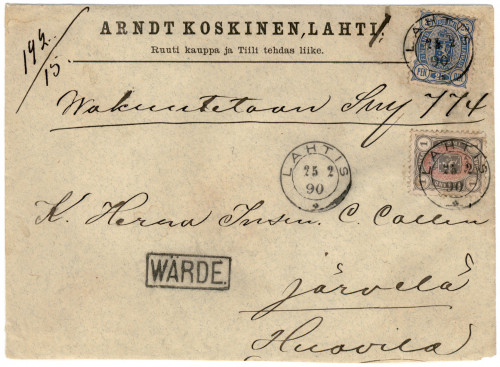 ARNDT KOSKINEN, LAHTI.
Ruuti kauppa ja Tiili tehdas liike.
192.
15.
LAHTIS
25 2
90
Wakuutetaan Smy 774
1
LAHTIS
25 2
90
LAHTIS
25 2
90
K. Herra Insen. C. Collin
WÄRDE.
Järvelä
Huovila